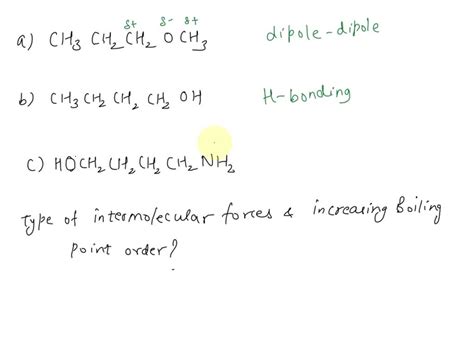 δ+ δ- δ+
a) CH3 CH2 CH2 O CH3 dipole-dipole
b) CH3 CH2 CH2 CH2 OH H-bonding
c) HOCH2 CH2 CH2 CH2 NH2
Type of intermolecular forces & increasing Boiling
point order?